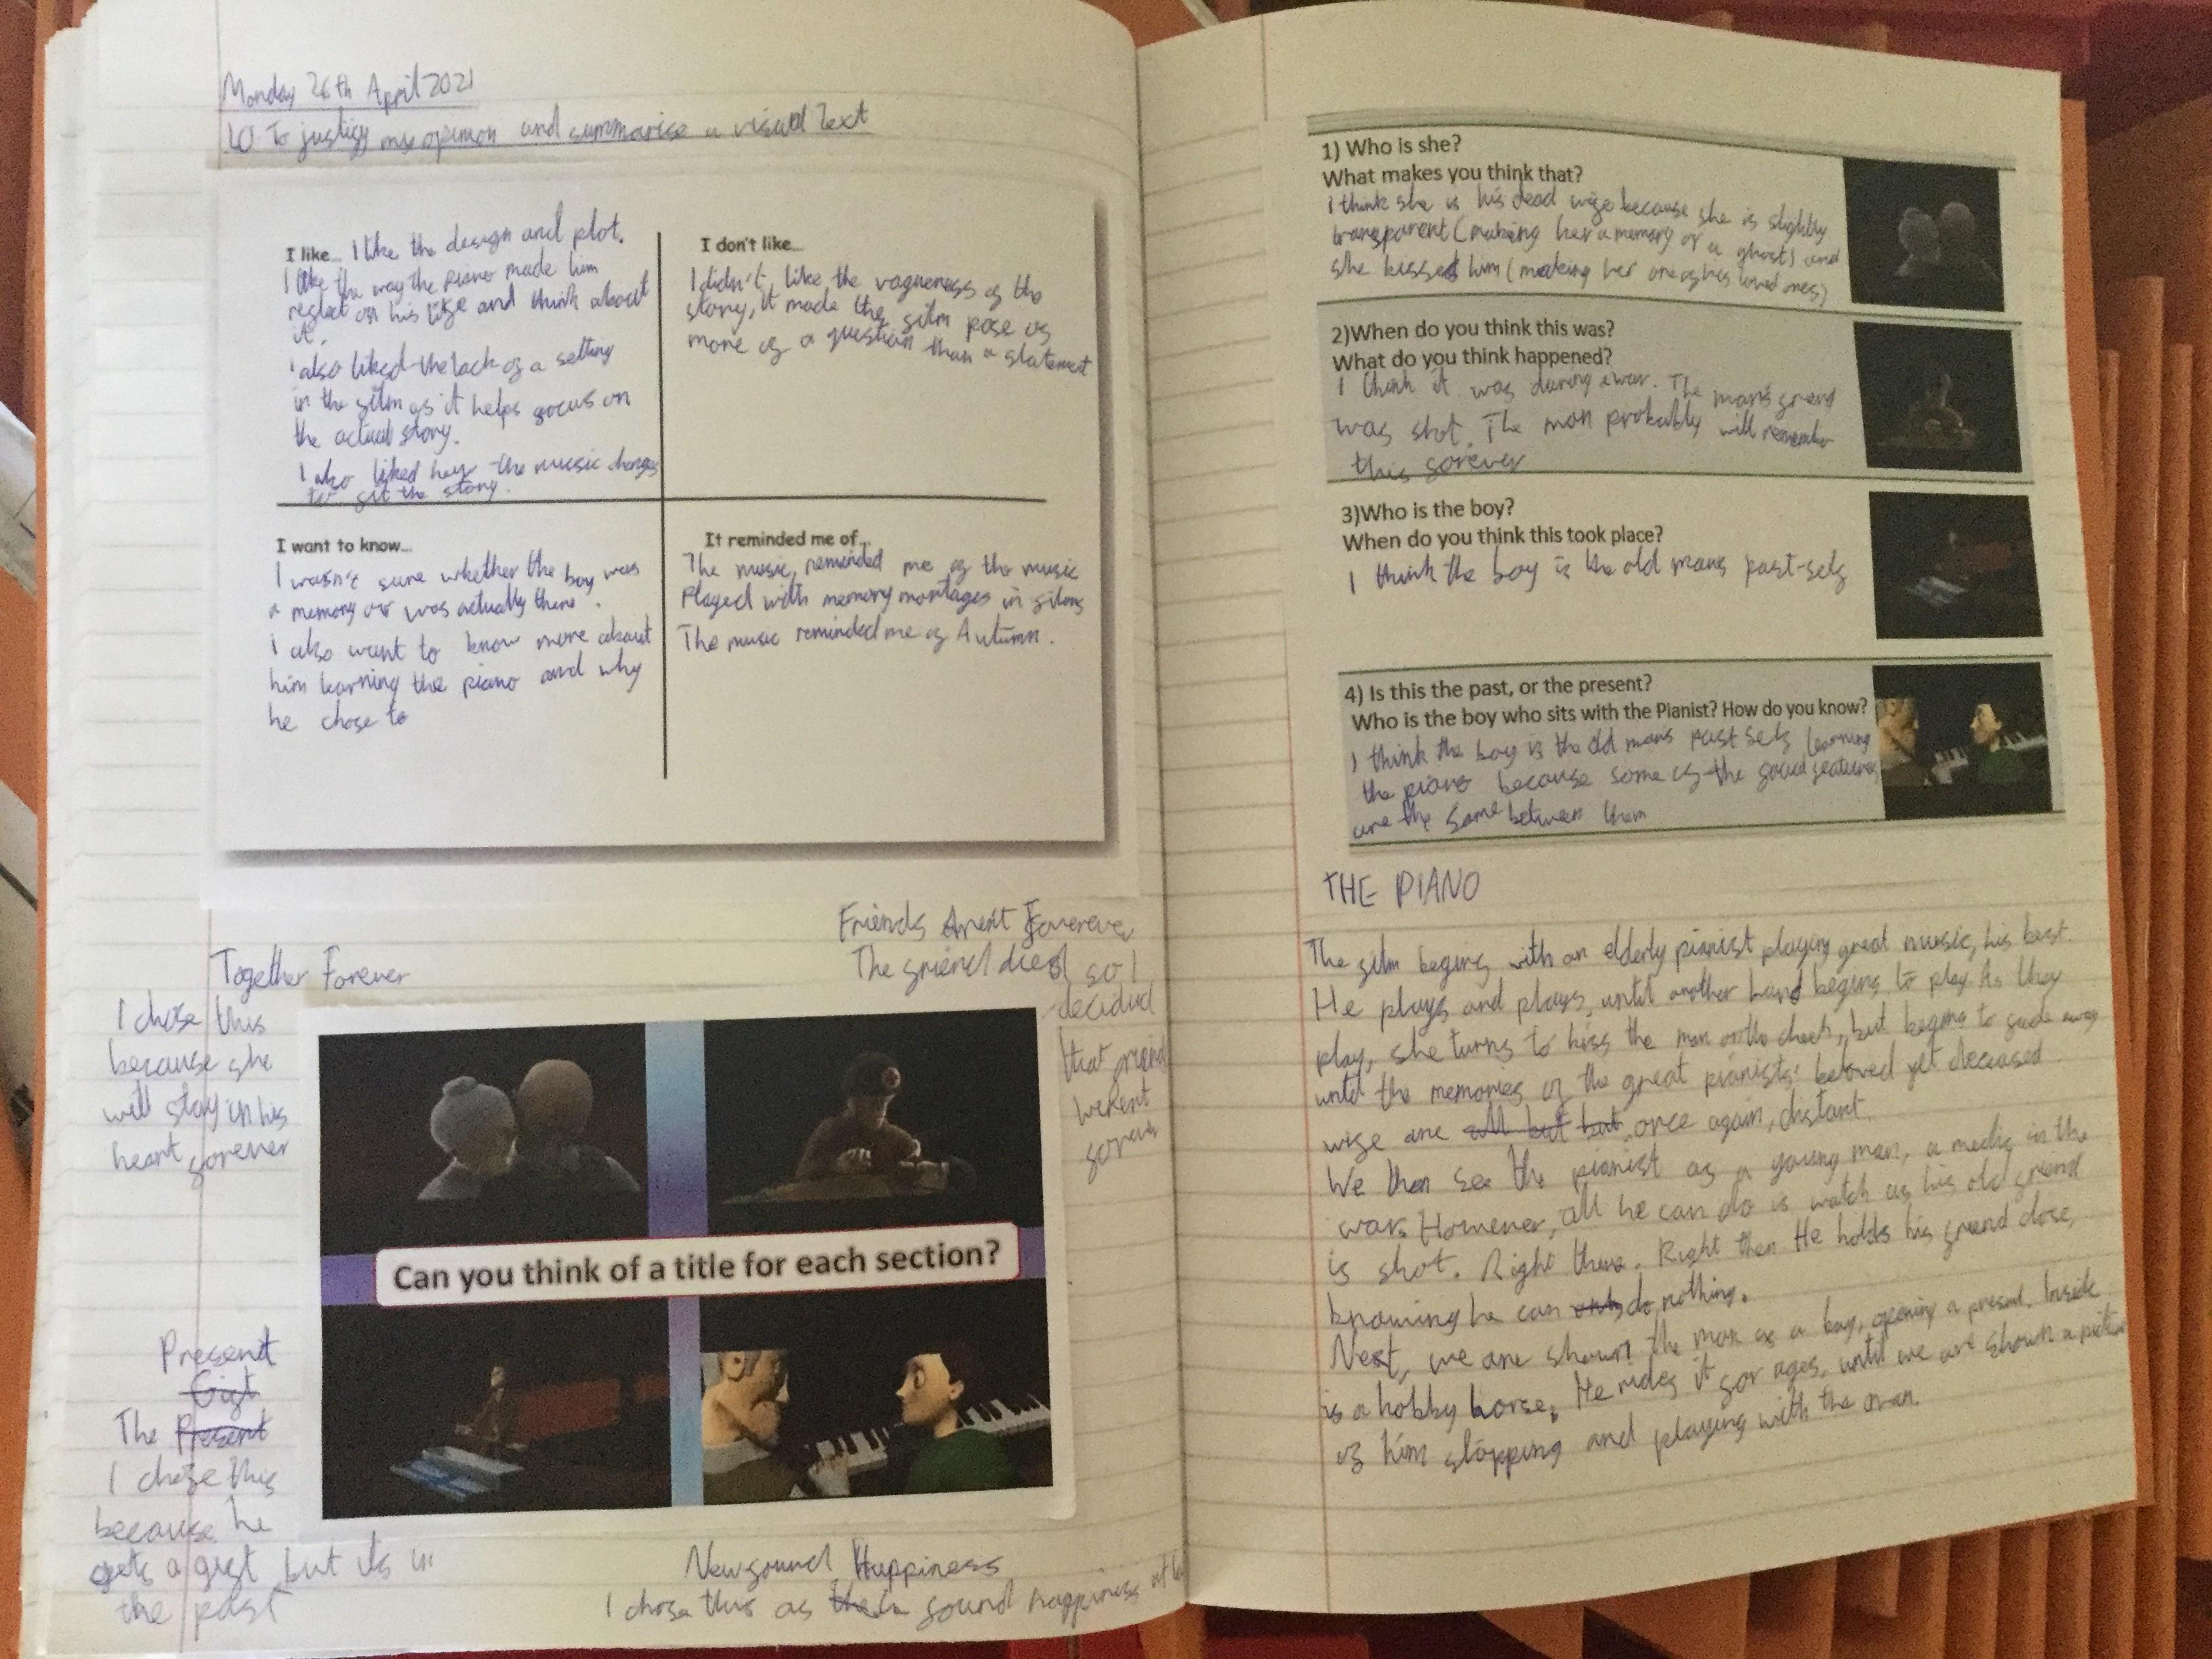 Monday 26th April 2021
LO To justify my opinion and summarise a visual text
I like... I like the design and plot.
I like the way the piano made him
reflect on his life and think about
it.
I also liked the lack of a setting
in the film as it helps focus on
the actual story.
I also liked how the music changes
to fit the story.
I don't like...
I didn't like the vagueness of the
story, it made the film pose as
more of a question than a statement
I want to know...
I wasn't sure whether the boy was
a memory or was actually there.
I also want to know more about
him learning the piano and why
he chose to
It reminded me of...
The music, reminded me of the music
Played with memory montages in films
The music reminded me of Autumn.
Together Forever
I chose this
because she
will stay in his
heart forever
Friends Aren't Forever
The friend died so I
decided
that friends
weren't
forever
Can you think of a title for each section?
Present
Gift
The Present
I chose this
because he
gets a gift but its in
the past
Newfound Happiness
I chose this as found happiness at
1) Who is she?
What makes you think that?
I think she is his dead wife because she is slightly
transparent (making her a memory or a ghost) and
she kissed him (making her one of his loved ones)
2)When do you think this was?
What do you think happened?
I think it was during a war. The man's friend
was shot. The man probably will remember
this forever
3)Who is the boy?
When do you think this took place?
I think the boy is the old mans past-self
4) Is this the past, or the present?
Who is the boy who sits with the Pianist? How do you know?
I think the boy is the old mans past self learning
the piano because some of the facial features
are the same between them
THE PIANO
The film begins with an elderly pianist playing great music, his best.
He plays and plays, until another hand begins to play. As they
play, she turns to kiss the man on the cheek, but begins to fade away
until the memories of the great pianists' beloved yet deceased
wife are all but but once again, distant.
We then see the pianist as a young man, a medic in the
war. However, all he can do is watch as his old friend
is shot. Right there. Right then. He holds his friend close,
knowing he can only do nothing.
Next, we are shown the man as a boy, opening a present. Inside
is a hobby horse. He rides it for ages, until we are shown a picture
of him stopping and playing with the man.